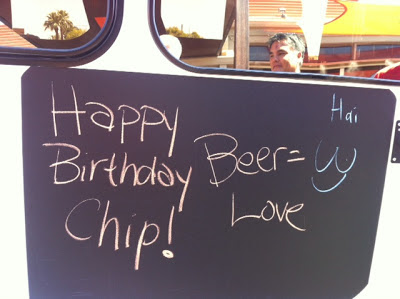 Happy
Birthday
Chip!
Beer=
Love
Hai